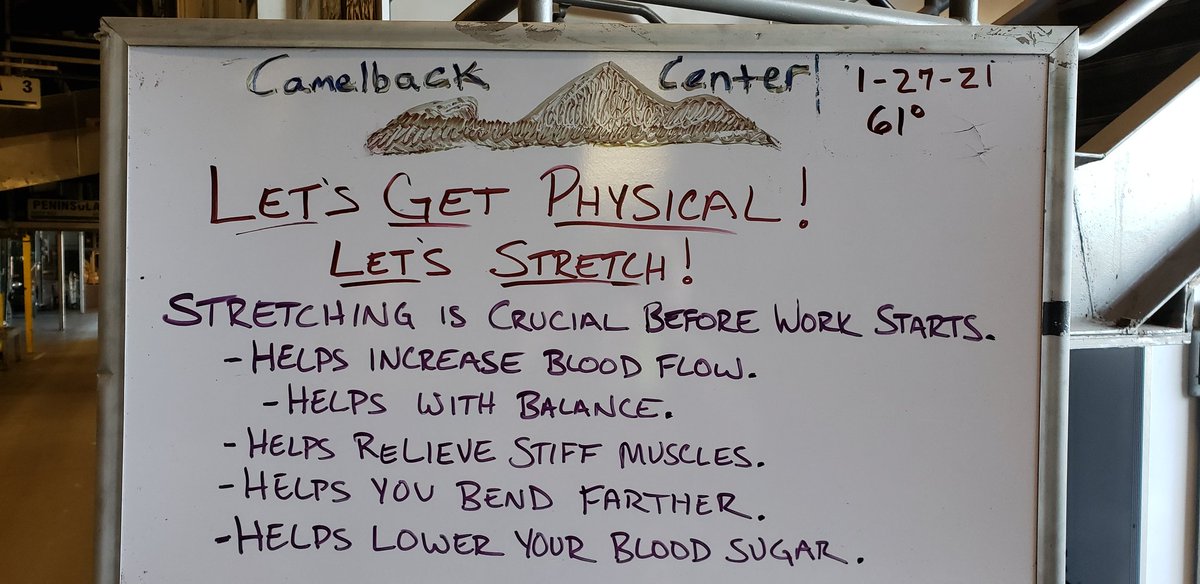 Camelback Center 1-27-21
61°
LET'S GET PHYSICAL!
LET'S STRETCH!
STRETCHING IS CRUCIAL BEFORE WORK STARTS.
- HELPS INCREASE BLOOD FLOW.
- HELPS WITH BALANCE.
- HELPS RELIEVE STIFF MUSCLES.
- HELPS YOU BEND FARTHER.
- HELPS LOWER YOUR BLOOD SUGAR.
3
PENINSULA